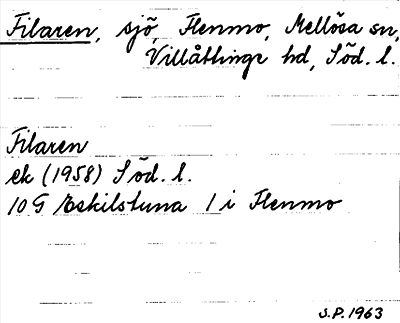 Filaren, sjö, Flenmo, Mellösa sn,
Villåttinge hd, Söd. l.
Filaren
ek (1958) Söd. l.
10 G Eskilstuna 1 i Flenmo
S.P. 1963